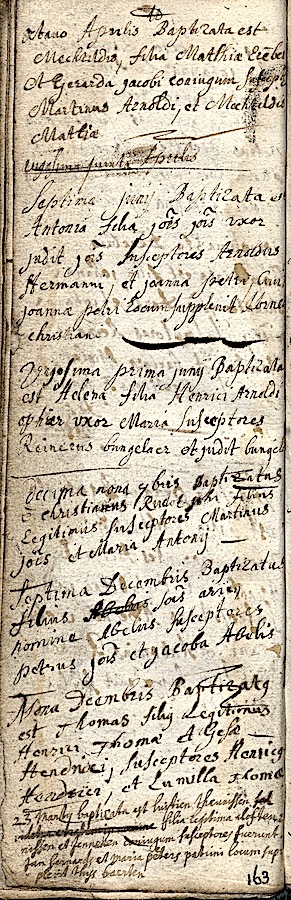 Octavo Aprilis Baptizata est
Mechtildis, filia Matthiæ
Et Gerarda Jacobi coniugum Suscept
Martinus Arnoldi, et Mechtildis
Mathiæ
Aprilis
Septima Junij Baptizata es
Antonia filia, joīs joīs vxor
judit joīs Susceptores Arnoldus
Hermanni, et joanna petri, cui
joannæ petri locum supplevit
christiani
Vigesima prima junij Baptizata
est Helena filia Henrici Arnoldi
ophier vxor Maria, Susceptores
Reinerus bungelaer et judit bungel
Decima nona 9bris Baptizatus
christianus Rudit filius
Legitimus Susceptores Martinus
joīs et Maria Antonij
Septima Decembris Baptizatus
filius joīs arien
nomine Abelus Susceptores
petrus joīs et jacoba Abelis
Nona Decembris Baptizatq
est Thomas filij Legitimus
Henrici Thomæ et Gesæ
Hendrici, Susceptores Henricq
Hendrici, et Lumilla Thomæ
23 Martij baptizatu est
filia legitima
nissen et jenneken coniugum susceptores fuerunt
Jan gerardts et maria peters patrini locum sup
thys baerten
163